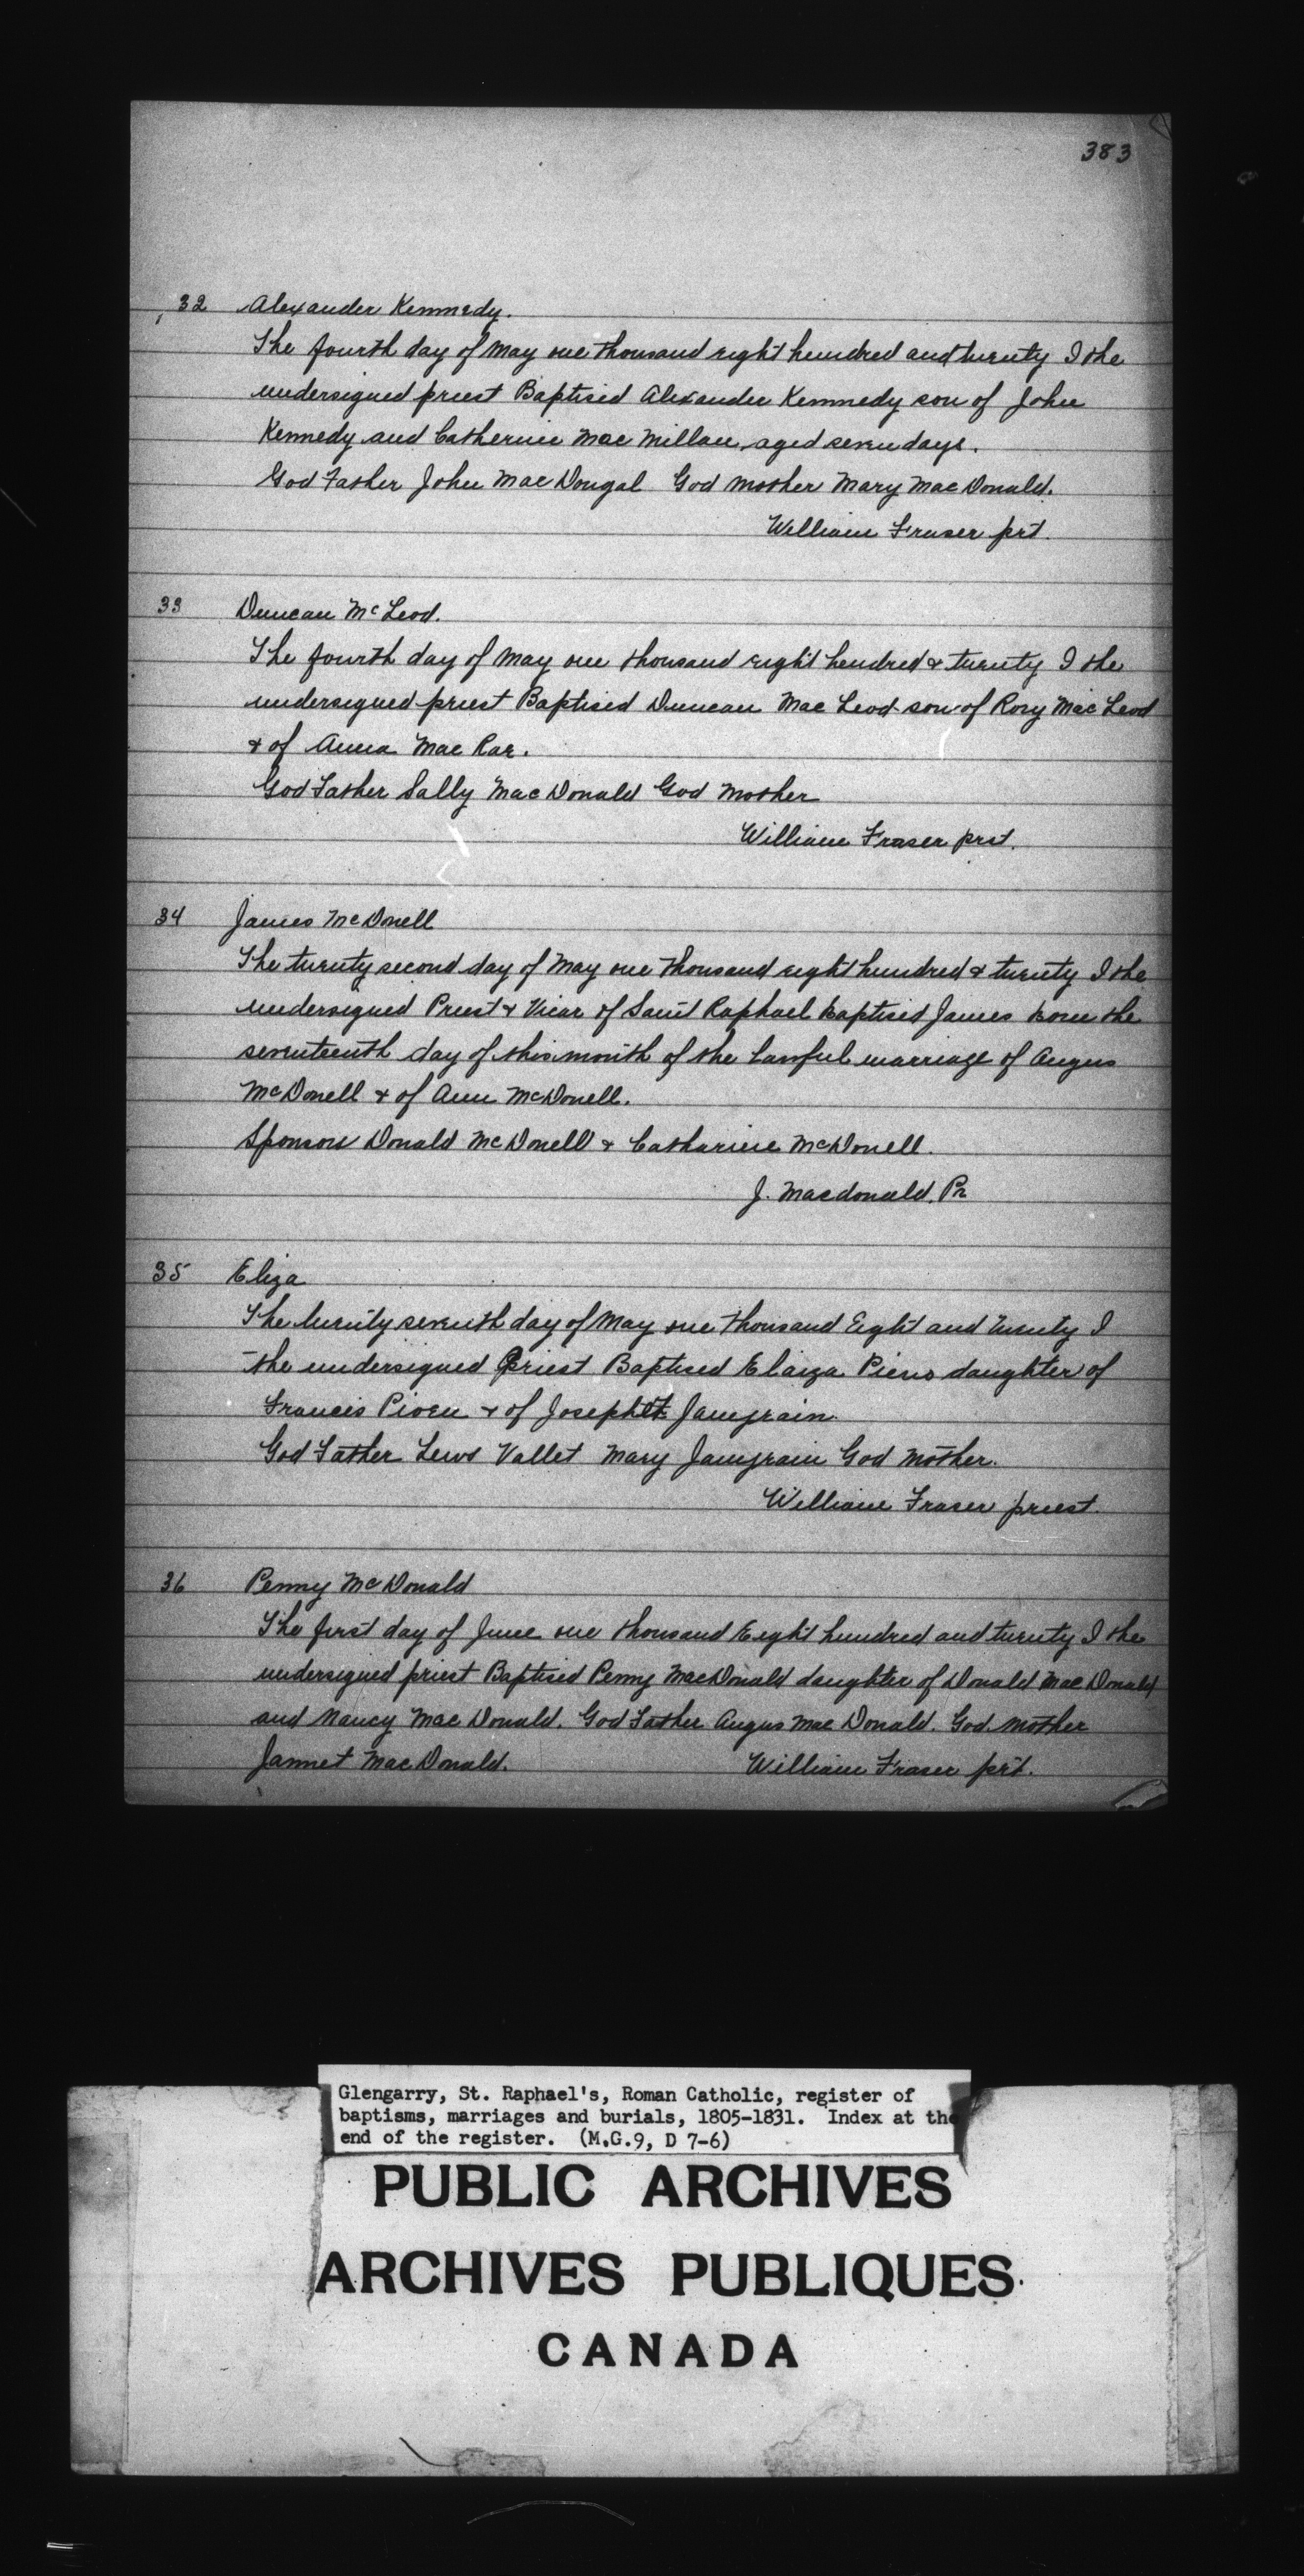 383
32 Alexander Kennedy.
The fourth day of May one thousand eight hundred and twenty I the
undersigned priest Baptised Alexander Kennedy son of John
Kennedy and Catherine Mac Millan, aged seven days.
God Father John Mac Dougal God mother Mary Mac Donald.
William Fraser prt.
33 Duncan McLeod.
The fourth day of May one thousand eight hundred & twenty I the
undersigned priest Baptised Duncan Mac Leod son of Rory Mac Leod
& of Anna Mac Rae.
God Father Sally Mac Donald God Mother
William Fraser prst.
34 James McDonell
The twenty second day of May one thousand eight hundred & twenty I the
undersigned Priest & Vicar of Saint Raphael baptised James born the
seventeenth day of this month of the lawful marriage of Angus
McDonell & of Ann McDonell.
Sponsors Donald McDonell & Catharine McDonell.
J. Macdonald. Pr
35 Eliza
The twenty seventh day of May one thousand Eight and twenty I
the undersigned Priest Baptised Elaiza daughter of
Francis & of
God Father Lews Vallet Mary God Mother.
William Fraser priest.
36 Penny McDonald
The first day of June one thousand Eight hundred and twenty I the
undersigned priest Baptised Penny MacDonald daughter of Donald Mac Donald
and Nancy Mac Donald. God Father Angus Mac Donald. God mother
Jannet MacDonald. William Fraser prt.
Glengarry, St. Raphael's, Roman Catholic, register of
baptisms, marriages and burials, 1805-1831. Index at the
end of the register. (M.G.9, D 7-6)
PUBLIC ARCHIVES
ARCHIVES PUBLIQUES
CANADA